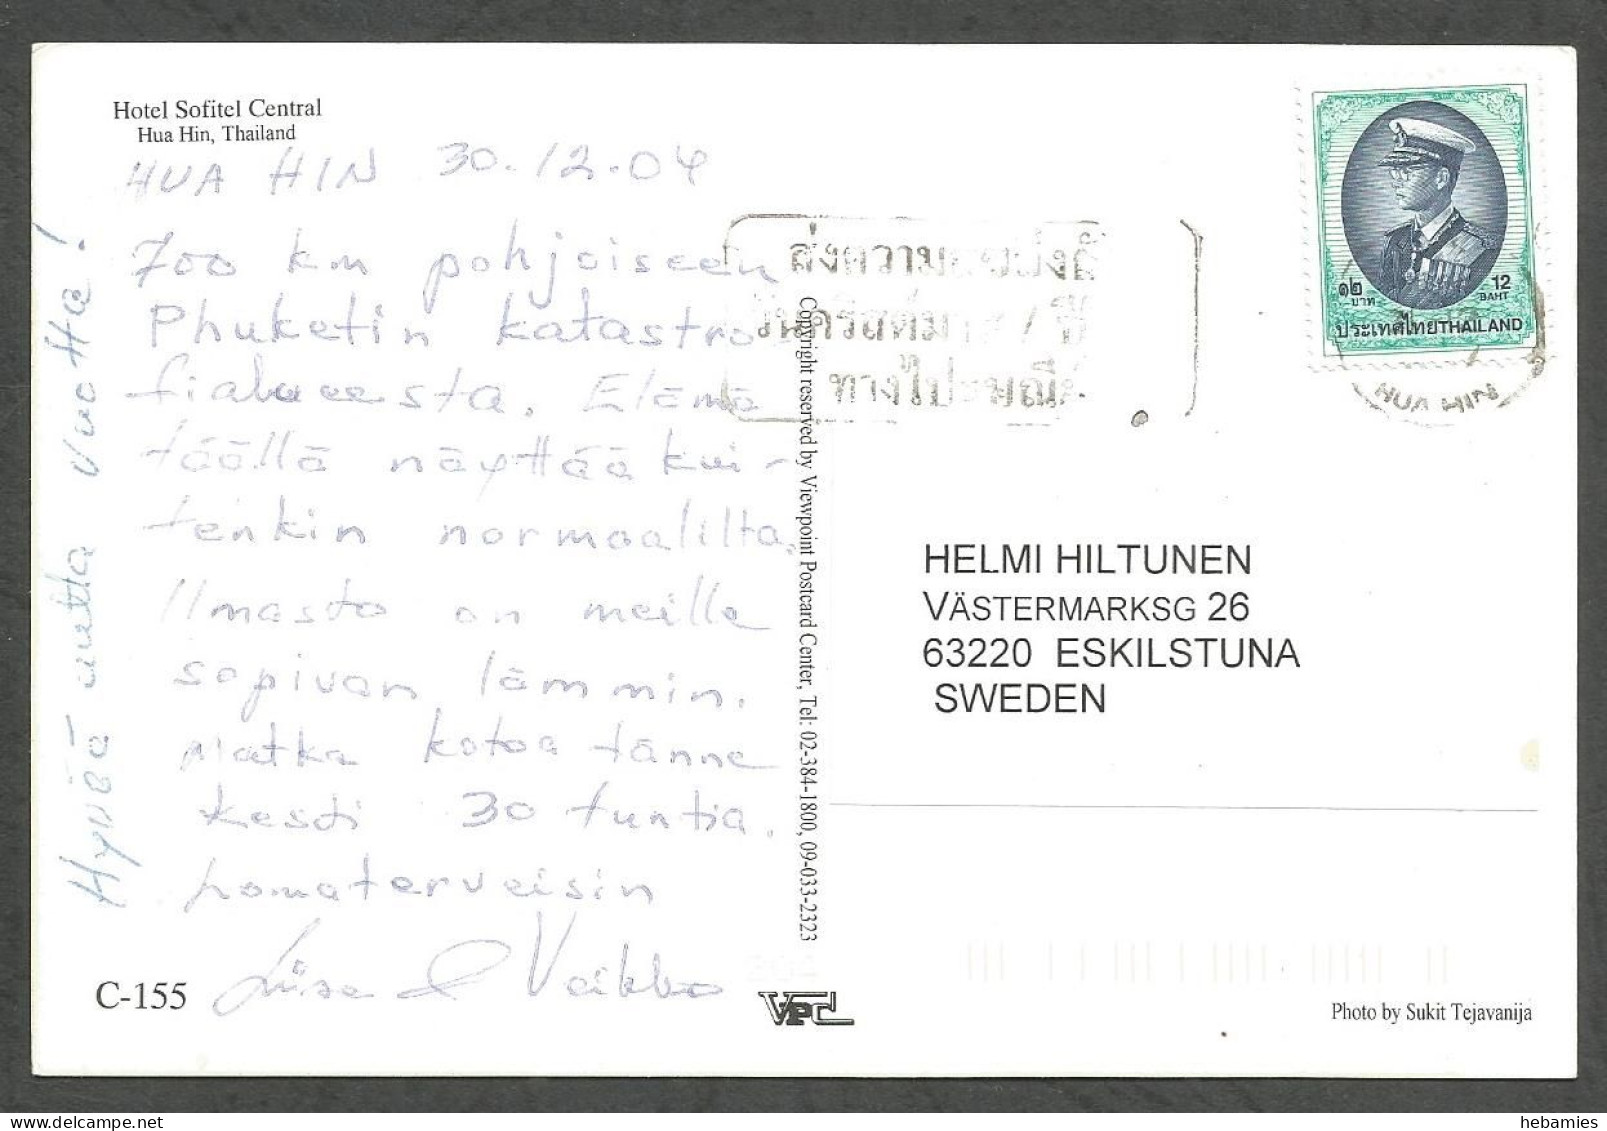 Hotel Sofitel Central
Hua Hin, Thailand
HUA HIN 30.12.04
700 km pohjoiseen
Phuketin katastro
fialueesta. Elämä
täällä näyttää kui-
tenkin normaalilta.
Ilmasto on meille
sopivan lämmin.
Matka kotoa tänne
kesti 30 tuntia.
Lomaterveisin
Liisa & Veikko
Hyvää uutta vuotta!
C-155
Copyright reserved by Viewpoint Postcard Center, Tel: 02-384-1800, 09-033-2323
VPC
ส่งความ
วันคริสต์มาส / ปี
ทางไปรษณีย์
๑๒
บาท
12
BAHT
ประเทศไทย THAILAND
HUA HIN
HELMI HILTUNEN
VÄSTERMARKSG 26
63220 ESKILSTUNA
SWEDEN
Photo by Sukit Tejavanija
hebamies